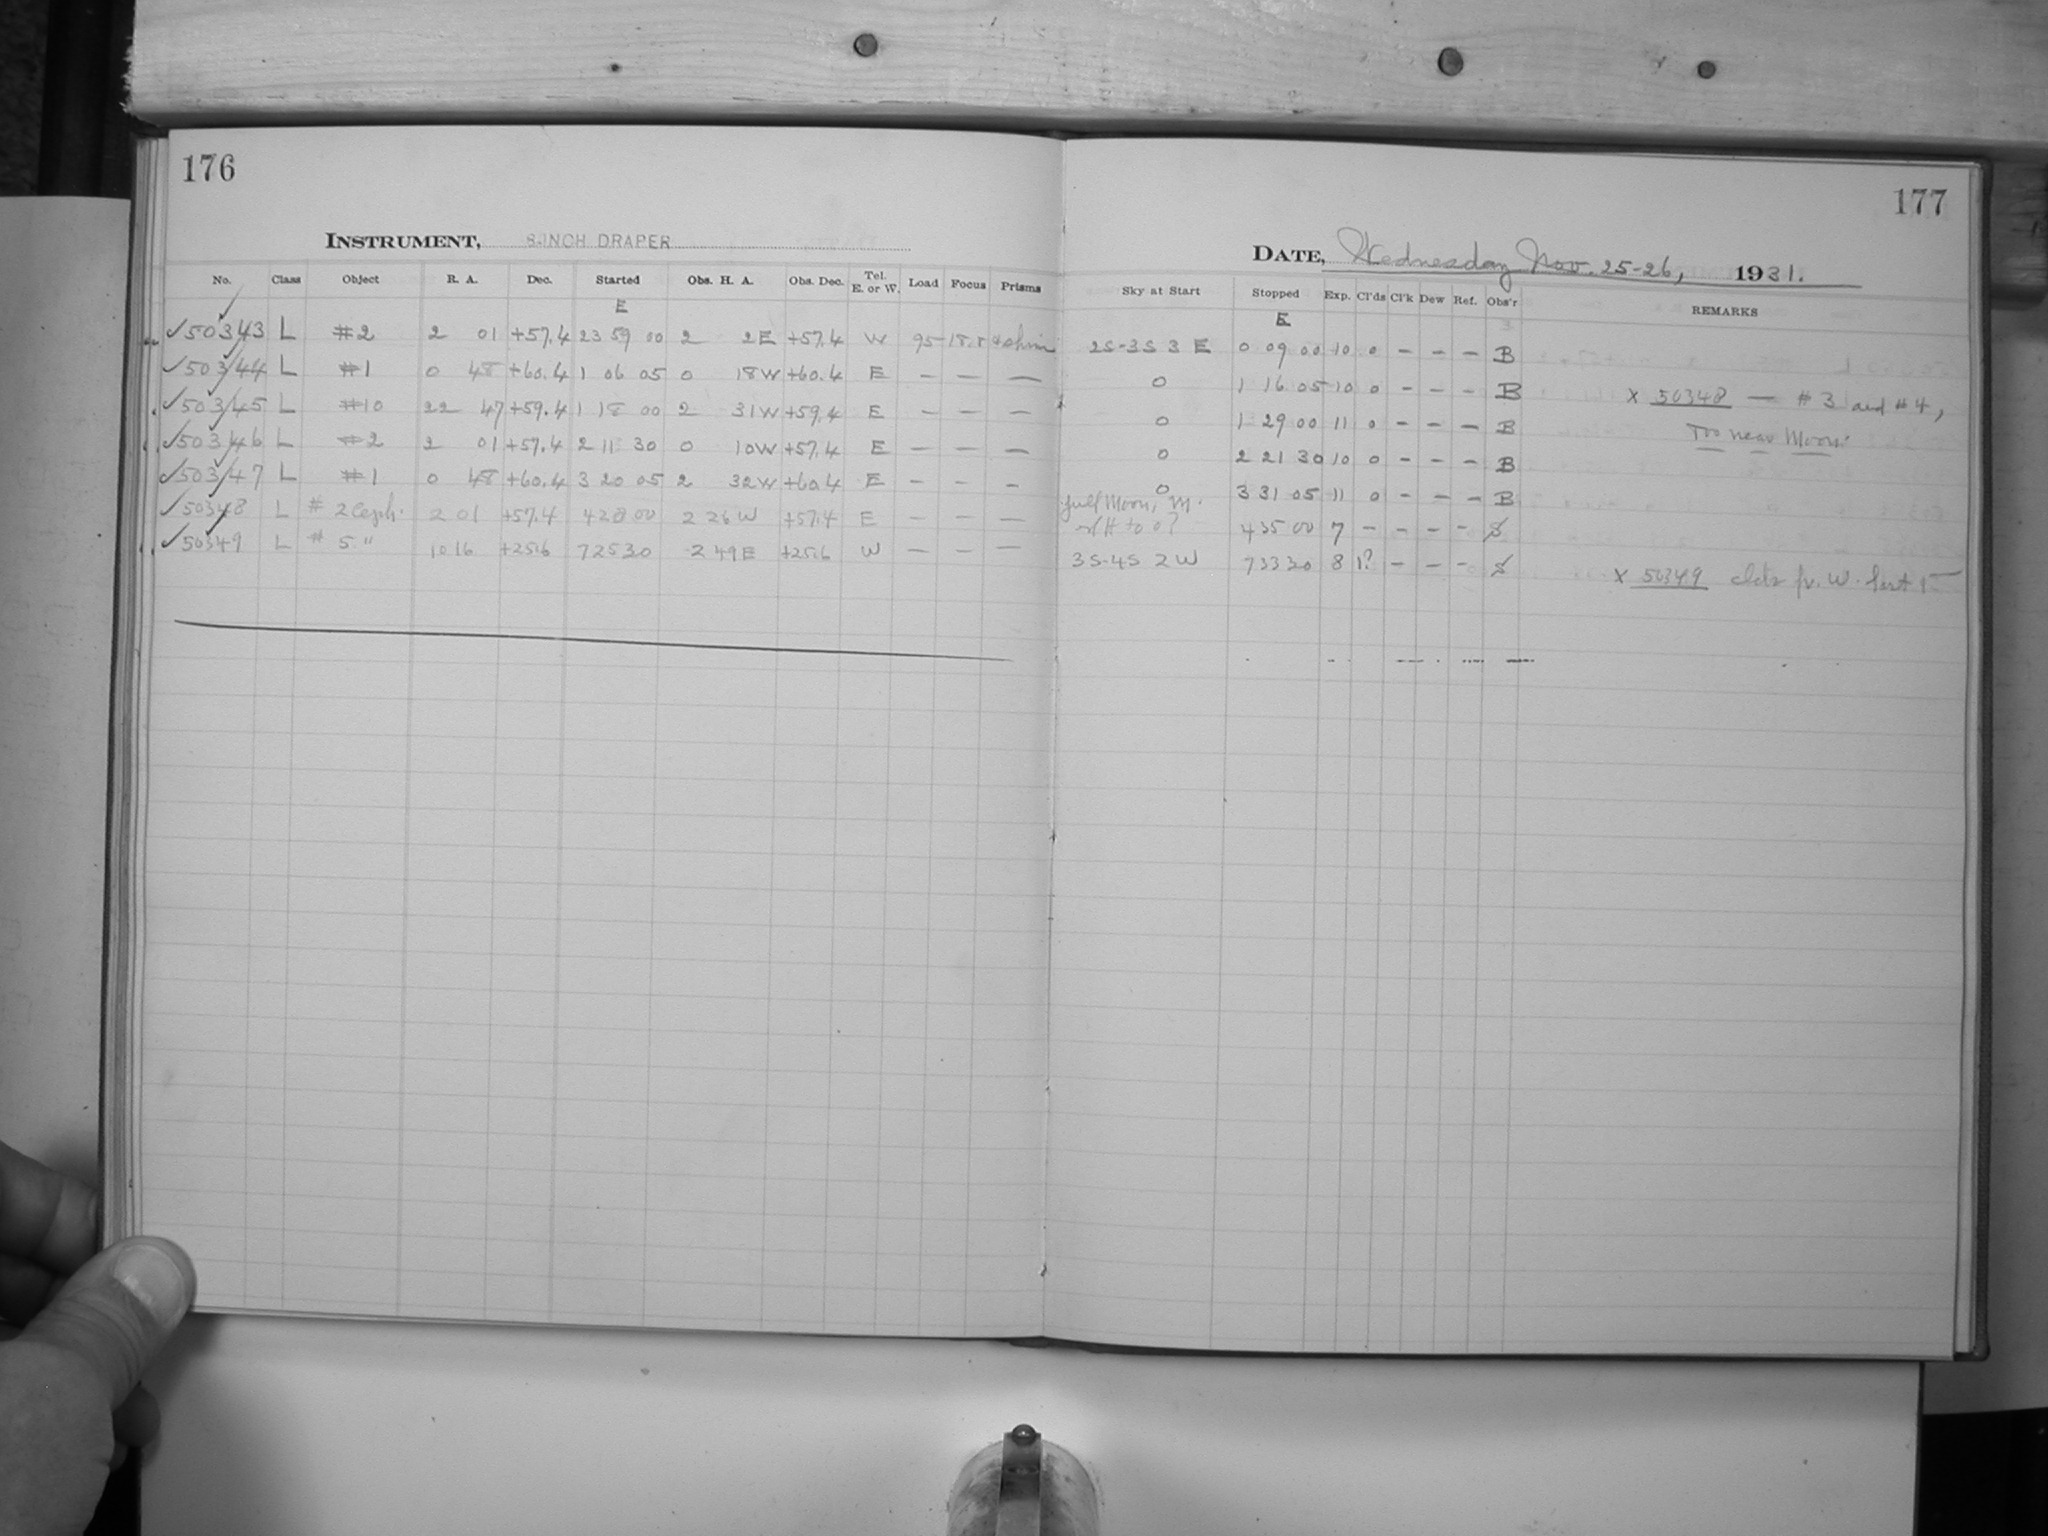 176
INSTRUMENT, 8-INCH DRAPER
No. Class Object R. A. Dec. Started Obs. H. A. Obs. Dec. Tel. E. or W. Load Focus Prisms
E
✓50343 L #2 2 01 +57.4 23 59 00 2 2E +57.4 W 95
✓50344 L #1 0 48 +60.4 1 06 05 0 18W +60.4 E — — —
✓50345 L #10 22 47 +59.4 1 18 00 2 31W +59.4 E — — —
✓50346 L #2 2 01 +57.4 2 11 30 0 10W +57.4 E — — —
✓50347 L #1 0 48 +60.4 3 20 05 2 32W +60.4 E — — —
✓50348 L #2 Ceph. 2 01 +57.4 4 28 00 2 26 W +57.4 E — — —
✓50349 L #5 " 10 16 +25.6 7 25 30 2 49 E +25.6 W — — —
177
DATE, Wednesday Nov. 25-26, 1931.
Sky at Start Stopped Exp. Cl'ds Cl'k Dew Ref. Obs'r REMARKS
E
2S-3S 3 E 0 09 00 10 0 — — — B
0 1 16 05 10 0 — — — B x 50348 — #3 and #4,
0 1 29 00 11 0 — — — B Too near Moon.
0 2 21 30 10 0 — — — B
0 3 31 05 11 0 — — — B
full Moon,
to 0? 4 35 00 7 — — — — S
3S-4S 2 W 7 33 30 8 1? — — — S x 50349 W. last